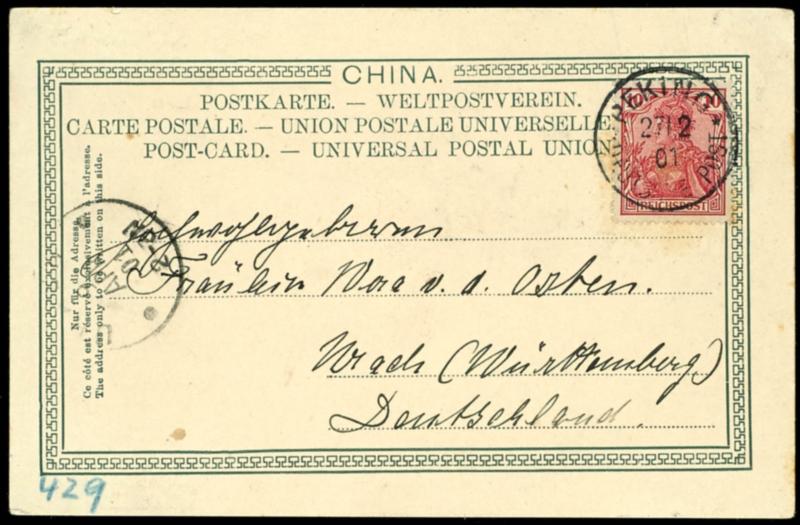 CHINA.
POSTKARTE. — WELTPOSTVEREIN.
CARTE POSTALE. — UNION POSTALE UNIVERSELLE
POST-CARD. — UNIVERSAL POSTAL UNION
PEKING
27/2
01
DEUTSCHE POST
REICHSPOST
Nur für die Adresse.
Ce côté est réservé exclusivement à l'adresse.
The address only to be written on this side.
Hochwohlgeboren
Fräulein Vera v. d. Osten.
(Württemberg.)
Deutschland.
429